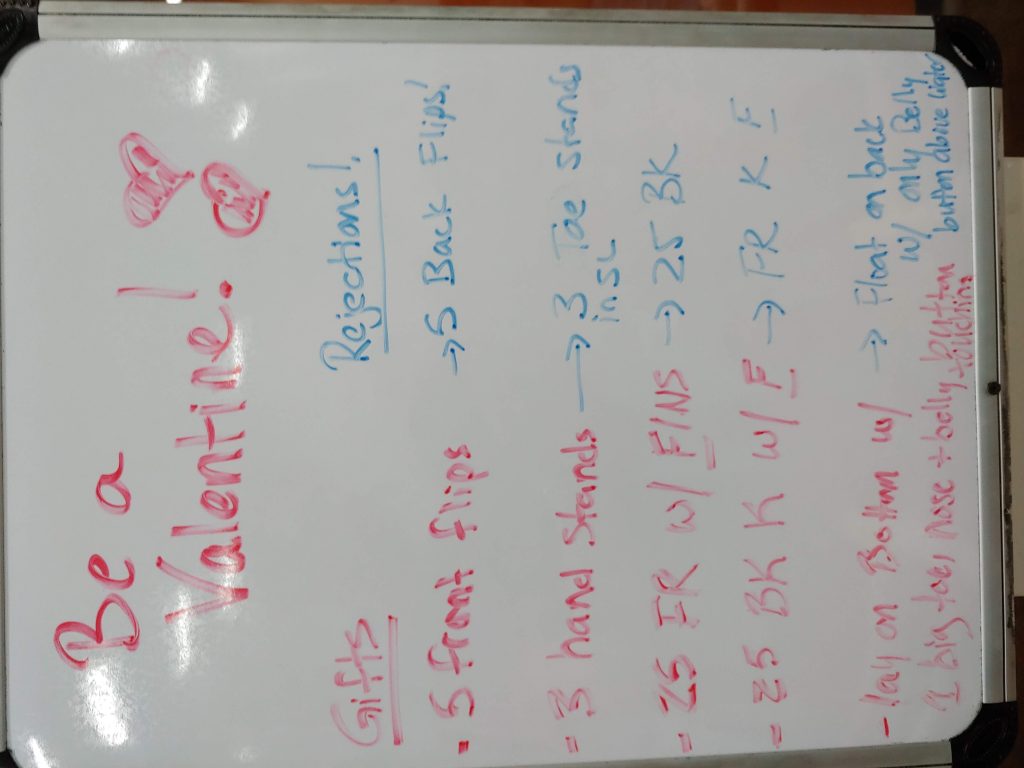 Be a
Valentine!
Gifts Rejections!
- 5 front flips → 5 Back Flips!
- 3 hand stands → 3 Toe stands
in SL
- 25 FR w/ FINS → 25 BK
- 25 BK K w/ F → FR K F
- lay on Bottom w/ → Float on back
1 big toe, nose + belly button w/ only Belly
touching button above water